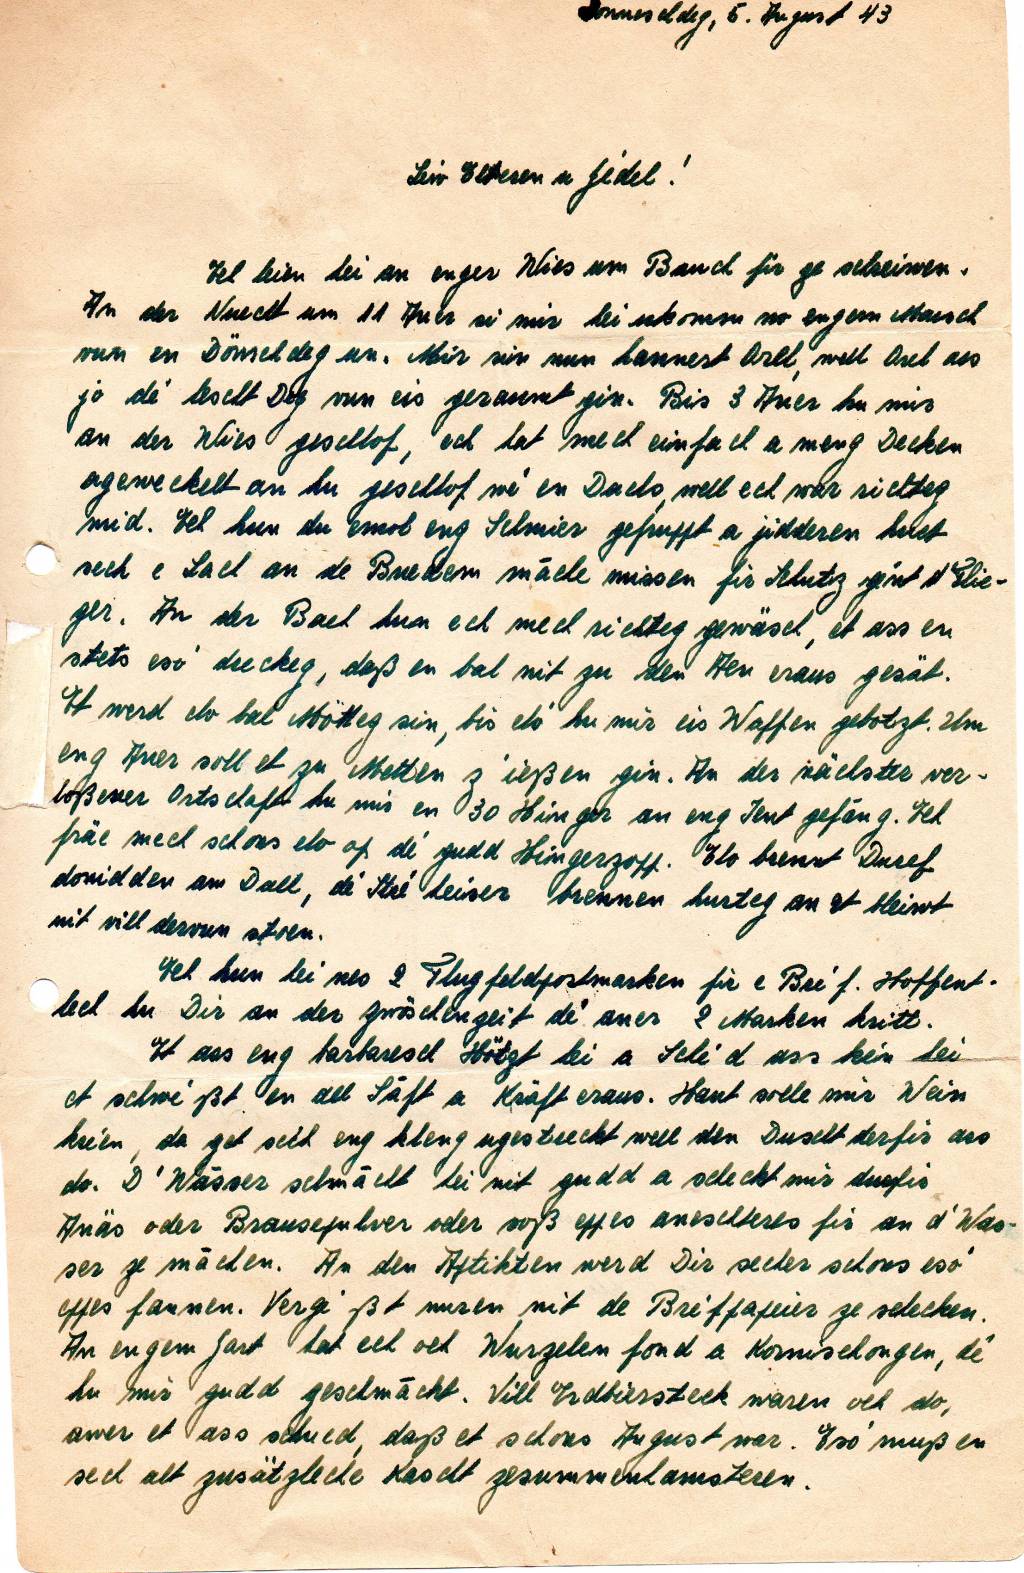 Donneschdeg, 5. August 43
Léiw Elteren a Jédel!
Ech leien hei an enger Wies um Bauch fir ze schreiwen.
An der Nuecht um 11 Auer si mir hei ukomm no engem Marsch
vum en Dönschdeg un. Mir sin nun hannert Orel, well Orel ass
jo dé lescht Deg vun eis geraumt gin. Bis 3 Auer hu mir
an der Wies geschlof, ech hat mech einfach a meng Decken
ageweckelt an hu geschlof wé en Dachs, well ech war richteg
mid. Ech hun du emol eng Schmier gefrupft a jidderen huet
sech e Lach an de Buedem mache missen fir Schutz gént d'Flie-
ger. An der Bach hun ech mech richteg gewäsch, et ass en
stets esó dreckeg, daß en bal nit zu den Aen eraus gesät.
Et werd elo bal Mötteg sin, bis eló hu mir eis Waffen gebotzt. Um
eng Auer soll et zu Metten z'ießen gin. An der nächster ver-
loßener Ortschaft hu mir en 30 Hinger an eng Tent gefäng. Ech
fräe mech schons elo op dé gudd Hingerzopp. Elo brennt Duref
donidden am Dall, dé Stréheiser brennen hurteg an et bleiwt
nit vill dervun stoen.
Ech hun hei nes 2 Flugfeldpostmarken fir e Bréf. Hoffent-
lech hu Dir an der Zwöschenzeit dé aner 2 Marken kritt.
Et ass eng barbaresch Hötzt hei a Schéd ass kén hei
et schwéßt en all Säft a Kräft eraus. Haut solle mir Wein
kréen, da get sech eng kleng ugestreckt well den Duscht derfir ass
do. D'Wässer schmächt hei nit gudd a scheckt mir duefir
Anäs oder Brausepulver oder soß eppes aneschteres fir an d'Was-
ser ze mächen. An den Aptikten werd Dir secher schons esó
eppes fannen. Vergéßt nuren nit de Bréfpapeier ze schecken.
An engem Gart hat ech och Wurzelen fond a Kornischongen, dé
hu mir gudd geschmächt. Vill Erdbiersteck waren och do,
awer et ass schued, daß et schons August war. Esó muß en
sech alt zusätzleche Kascht zesummenhamsteren.